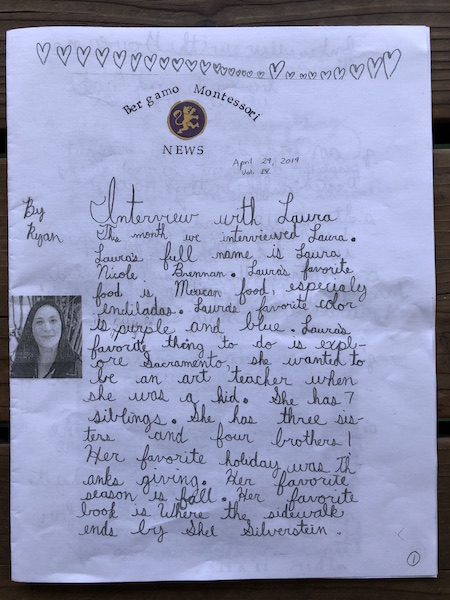 Bergamo Montessori
NEWS
April 29, 2019
By
Ryan
Interview with Laura
This month we interviewed Laura.
Laura's full name is Laura
Nicole Brennan. Laura's favorite
food is Mexican food, especialy
endiladas. Laura's favorite color
is purple and blue. Laura's
favorite thing to do is expl-
ore Sacramento, she wanted to
be an art teacher when
she was a kid. She has 7
siblings. She has three sis-
ters and four brothers!
Her favorite holiday was Th
anks giving. Her favorite
season is fall. Her favorite
book is Where the sidewalk
ends by Shel Silverstein.
1